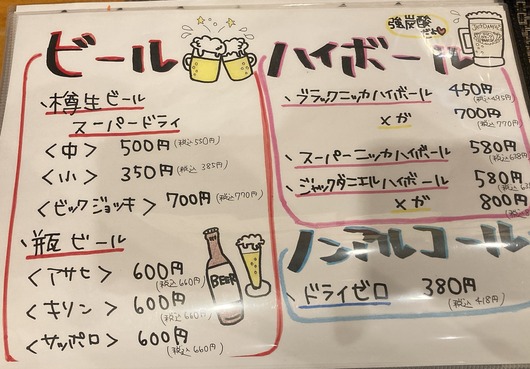 ビール
樽生ビール
スーパードライ
<中> 500円(税込550円)
<小> 350円(税込385円)
<ビックジョッキ> 700円(税込770円)
瓶ビール
<アサヒ> 600円(税込660円)
<キリン> 600円(税込660円)
<サッポロ> 600円(税込660円)
BEER
強炭酸
だよ
ハイボール
ブラックニッカハイボール 450円(税込495円)
メガ 700円(税込770円)
スーパーニッカハイボール 580円
ジャックダニエルハイボール 580円
メガ 800円
ノンアルコール
ドライゼロ 380円(税込418円)